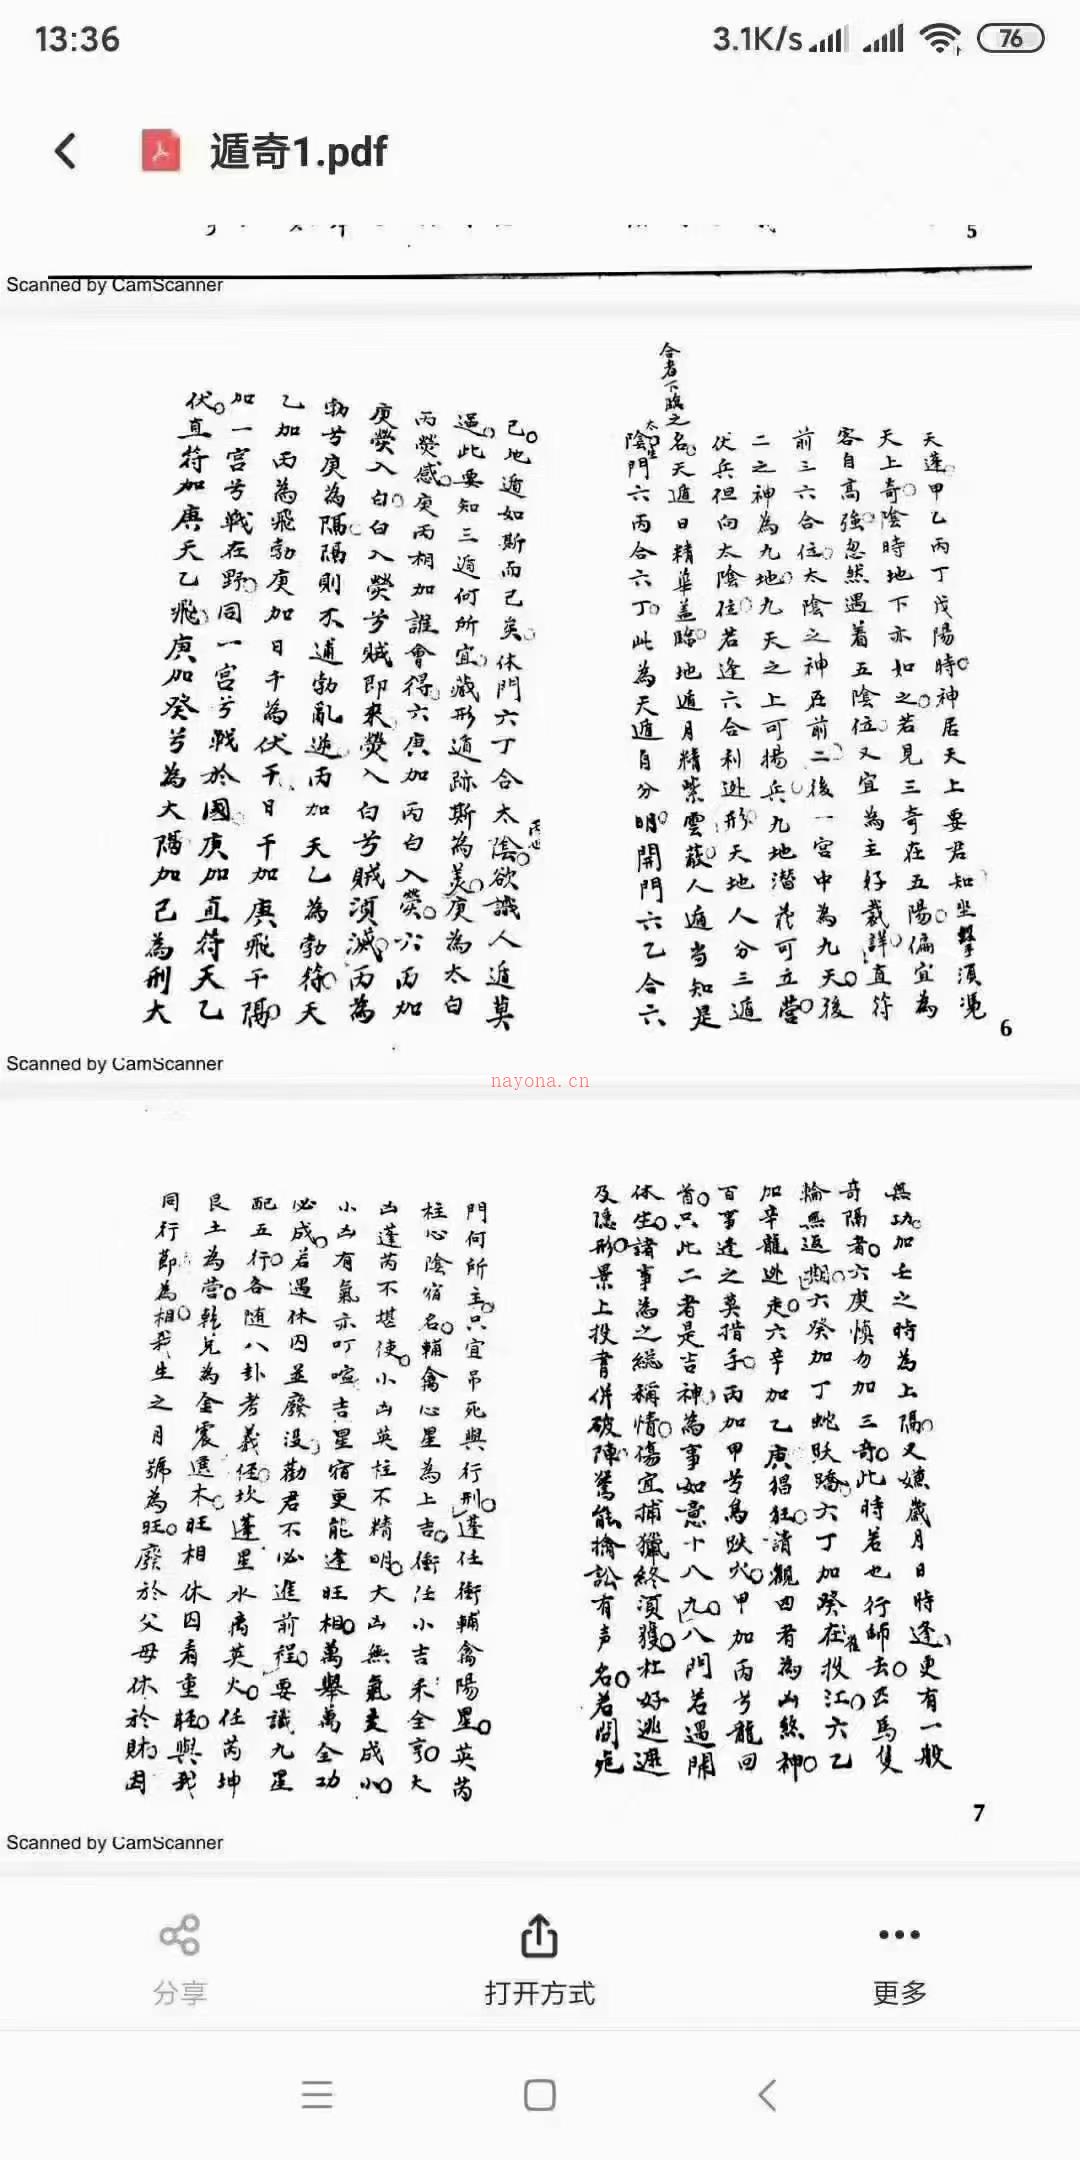 13:36
3.1K/s
76
遁奇1.pdf
5
Scanned by CamScanner
天蓬甲乙丙丁戊陽時神居天上要君知坐擊須憑
天上奇陰時地下亦如之若見三奇在五陽偏宜為
客自高強忽然遇着五陰位又宜為主好裁詳直符
前三六合位太陰之神在前二後一宮中為九天後
二之神為九地九天之上可揚兵九地潛藏可立營
伏兵但向太陰位若逢六合利逃形天地人分三遁
名天遁日精華蓋臨地遁月精紫雲蔽人遁当知是
合者下臨之太星
陰門六丙合六丁此為天遁自分明開門六乙合六
己地遁如斯而已矣休門六丁合太陰欲識人遁莫
丙也
過此要知三遁何所宜藏形遁跡斯為美庚為太白
丙熒惑庚丙相加誰會得六庚加丙白入熒六丙加
庚熒入白白入熒兮賊即來熒入白兮賊須滅丙為
勃兮庚為隔隔則不通勃亂逆丙加天乙為勃符天
乙加丙為飛勃庚加日干為伏干日干加庚飛干隔
加一宮兮戰在野同一宮兮戰於國庚加直符天乙
伏直符加庚天乙飛庚加癸兮為大隔加己為刑大
6
Scanned by CamScanner
nayona.cn
無功加壬之時為上隔又嫌歲月日時逢更有一般
奇隔者六庚慎勿加三奇此時若也行師去匹馬隻
輪無返期六癸加丁蛇妖蹻六丁加癸雀投江六乙
加辛龍逃走六辛加乙庚猖狂請觀四者為凶煞神
百事逢之莫措手丙加甲兮鳥跌穴甲加丙兮龍回
首只此二者是吉神為事如意十八九八門若遇開
休生諸事為之總稱情傷宜捕獵終須獲杜好逃遮
及隱形景上投書併破陣驚能擒訟有声名若問死
門何所主只宜吊死與行刑蓬任衝輔禽陽星英芮
柱心陰宿名輔禽心星為上吉衝任小吉未全亨大
凶蓬芮不堪使小凶英柱不精明大凶無氣变成小
小凶有氣亦叮喧吉星宿更能逢旺相萬舉萬全功
必成若遇休囚並廢没勸君不必進前程要識九星
配五行各随八卦考義経坎蓬星水离英火任芮坤
艮土為营乾兑為金震選木旺相休囚看重軽與我
同行即為相我生之月號為旺廢於父母休於財囚
7
Scanned by CamScanner
分享
打开方式
更多